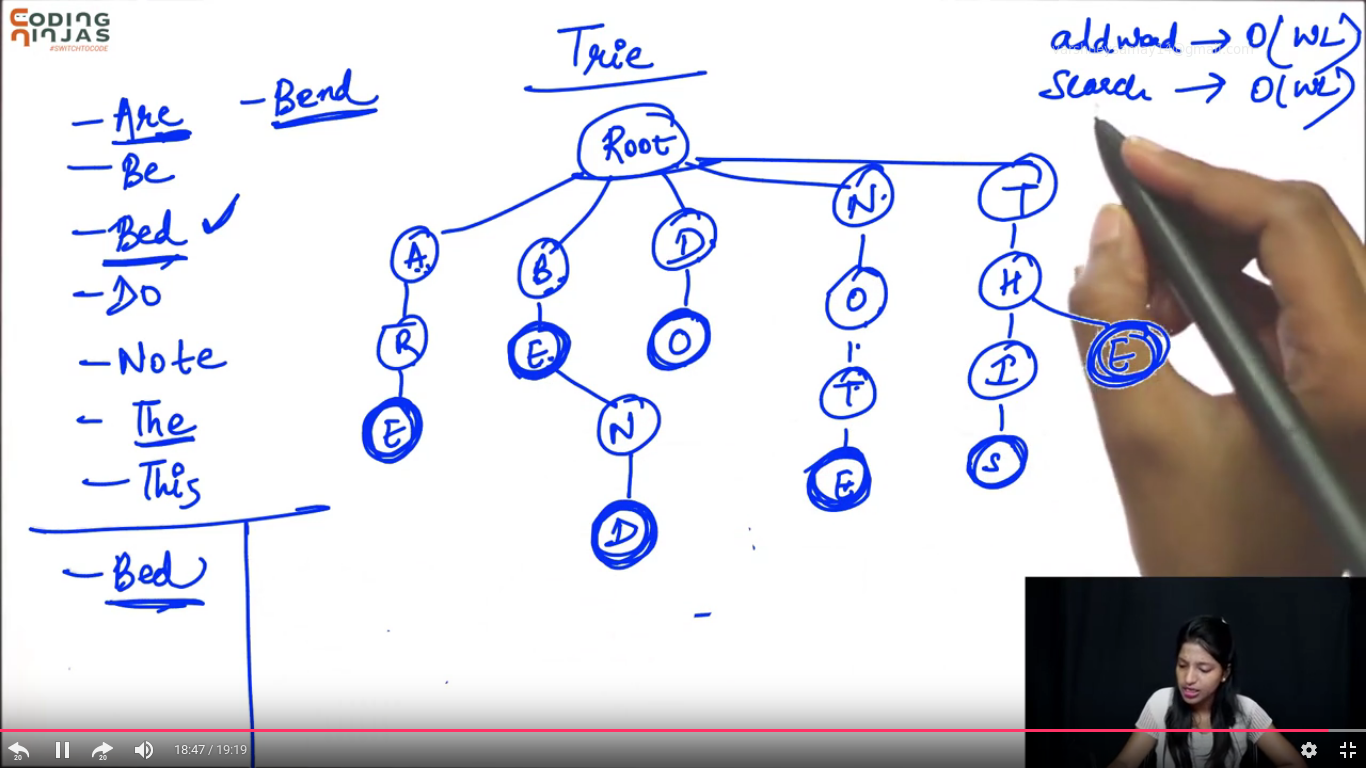 CODING
NINJAS
#SWITCHTOCODE
Trie
addword → O(WL)
Search → O(WL)
- Are
- Bend
- Be
- Bed ✓
- DO
- Note
- The
- This
- Bed
Root
A B D N T
R E O O H
E N T I E
D E S
20
20
18:47 / 19:19